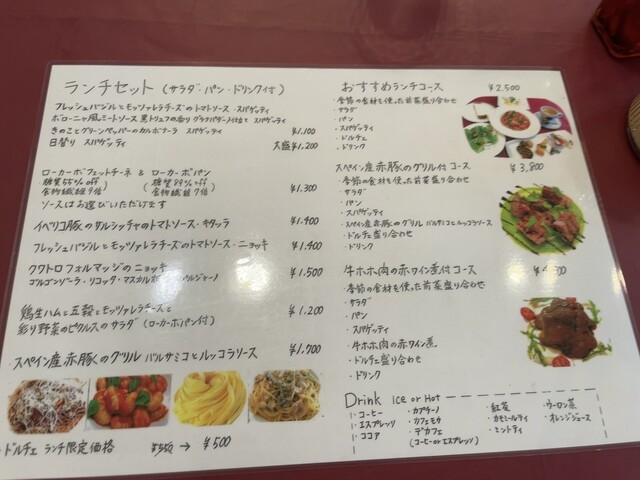 ランチセット (サラダ・パン・ドリンク付)
フレッシュバジルとモッツァレラチーズのトマトソース・スパゲッティ
ボローニャ風ミートソース 黒トリュフの香り グラナパダーノ仕立て スパゲッティ
きのことグリーンペッパーのカルボナーラ スパゲッティ ¥1,100
日替り スパゲッティ 大盛¥1,200
ローカーボフェットチーネ & ローカーボパン
糖質55%off (糖質84%off
食物繊維9倍 食物繊維7倍) ¥1,300
ソースはお選びいただけます
イベリコ豚のサルシッチャのトマトソース・キタッラ ¥1,400
フレッシュバジルとモッツァレラチーズのトマトソース・ニョッキ ¥1,400
クワトロフォルマッジのニョッキ ¥1,500
ゴルゴンゾーラ・リコッタ・マスカルポ
鶏生ハムと五穀とモッツァレラチーズと ¥1,200
彩り野菜のピクルスのサラダ (ローカーボパン付)
・スペイン産赤豚のグリル バルサミコとルッコラソース ¥1,700
・ドルチェ ランチ限定価格 ¥550 → ¥500
おすすめランチコース ¥2,500
・季節の食材を使った前菜盛り合わせ
・サラダ
・パン
・スパゲッティ
・ドルチェ
・ドリンク
スペイン産赤豚のグリル付コース ¥3,800
・季節の食材を使った前菜盛り合わせ
・サラダ
・パン
・スパゲッティ
・スペイン産赤豚のグリル バルサミコとルッコラソース
・ドルチェ盛り合わせ
・ドリンク
牛ホホ肉の赤ワイン煮付コース
・季節の食材を使った前菜盛り合わせ
・サラダ
・パン
・スパゲッティ
・牛ホホ肉の赤ワイン煮
・ドルチェ盛り合わせ
・ドリンク
Drink Ice or Hot
・コーヒー ・カプチーノ ・紅茶 ・ウーロン茶
・エスプレッソ ・カフェモカ ・カモミールティ ・オレンジジュース
・ココア ・デカフェ ・ミントティ
(コーヒーor エスプレッソ)